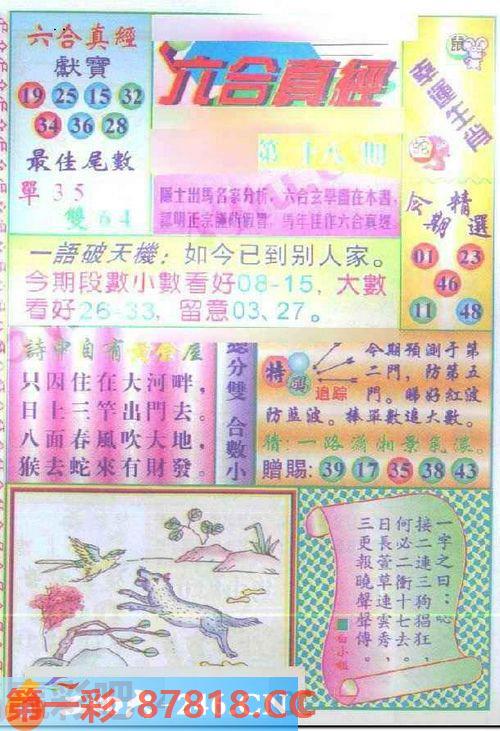 六合真經
獻寶
19 25 15 32
34 36 28
最佳尾數
單35
雙64
六合真經
第十八期
隱士出馬名家分析，六合玄學盡在本書，
認明正宗謹防假冒，馬年佳作六合真經
鼠
幸運生肖
蛇
今期精選
01 23
46
11 48
一語破天機：如今已到别人家。
今期段數小數看好08-15，大數
看好26-33，留意03、27。
詩中自有黃金屋
只因住在大河畔，
日上三竿出門去。
八面春風吹大地，
猴去蛇來有財發。
總分雙 合數小
特碼
追踪
今期預測于第
二門，防第五
門。睇好紅波
防蓝波。棒單數追大數。
猜：一路瀟湘景氣濃。
贈賜：39 17 35 38 43
一字之曰：吣
接二連三狗猖狂，
何必二衝十七去。
日長萱草連雲秀，
三更報曉聲聲傳。
白小姐
第一彩 87818.CC